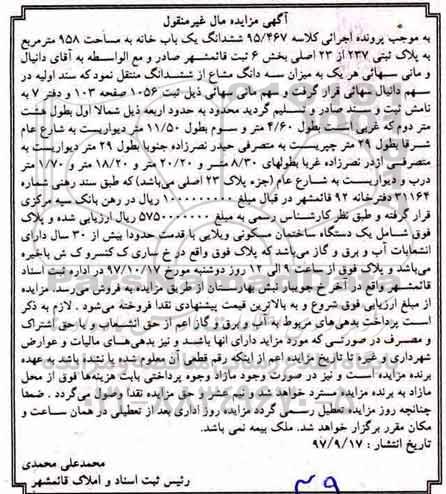 آگهی مزایده مال غیرمنقول
به موجب پرونده اجرائی کلاسه ۹۵/۴۶۷ ششدانگ یک باب خانه به مساحت ۹۵۸ مترمربع
به پلاک ثبتی ۲۳۷ از ۲۳ اصلی بخش ۶ ثبت قائمشهر صادر و مع الواسطه به آقای دانیال
و مانی سهائی هر یک به میزان سه دانگ مشاع از ششدانگ منتقل نمود که سند اولیه در
سهم دانیال سهائی قرار گرفت و سهم مانی سهائی ذیل ثبت ۱۰۵۶ صفحه ۱۰۳ و دفتر ۷ به
نامش ثبت و سند صادر و تسلیم گردید محدود به حدود اربعه ذیل شمالا اول بطول هشت
متر دوم که غربی است بطول ۴/۶۰ متر و سوم بطول ۱۱/۵۰ متر دیواریست به شارع عام
شرقا بطول ۲۹ متر چپریست به متصرفی حیدر نصرزاده جنوبا بطول ۲۹ متر دیواریست به
متصرفی اژدر نصرزاده غربا بطولهای ۸/۳۰ متر و ۲۰/۲۰ متر و ۱۸/۲۰ متر و ۱/۷۰ متر
درب و دیواریست به شارع عام (جزء پلاک ۲۳ اصلی می‌باشد) که طبق سند رهنی شماره
۲۱۱۶۴ دفترخانه ۹۲ قائمشهر در قبال مبلغ ۱۰۰۰۰۰۰۰۰۰ ریال در رهن بانک سپه مرکزی
قرار گرفته و طبق نظر کارشناس رسمی به مبلغ ۵۷۵۰۰۰۰۰۰۰ ریال ارزیابی شده و پلاک
فوق شامل یک دستگاه ساختمان مسکونی ویلایی با قدمت حدودا بیش از ۳۰ سال دارای
انشعابات آب و برق و گاز می‌باشد که پلاک فوق واقع در خ ساری ک کنسرو ک ش باخیره
می‌باشد و پلاک فوق از ساعت ۹ الی ۱۲ روز دوشنبه مورخ ۹۷/۱۰/۱۷ در اداره ثبت اسناد
قائمشهر واقع در آخر خ جویبار نبش بهارستان از طریق مزایده به فروش می‌رسد. مزایده
از مبلغ ارزیابی فوق شروع و به بالاترین قیمت پیشنهادی نقدا فروخته می‌شود. لازم به ذکر
است پرداخت بدهی‌های مربوط به آب و برق و گاز اعم از حق انشعاب و یا حق اشتراک
و مصرف در صورتی که مورد مزاید دارای آنها باشد و نیز بدهی‌های مالیات و عوارض
شهرداری و غیره تا تاریخ مزایده اعم از اینکه رقم قطعی آن معلوم شده یا نشده باشد به عهده
برنده مزایده است و نیز در صورت وجود مازاد وجوه پرداختی بابت هزینه‌ها فوق از محل
مازاد به برنده مزایده مسترد خواهد شد و نیم عشر و حق مزایده نقدا وصول می‌گردد. ضمنا
چنانچه روز مزایده تعطیل رسمی گردد مزایده روز اداری بعد از تعطیلی در همان ساعت و
مکان مقرر برگزار خواهد شد. ملک بیمه نمی باشد.
تاریخ انتشار : ۹۷/۹/۱۷
محمدعلی محمدی
رئیس ثبت اسناد و املاک قائمشهر
۳۹